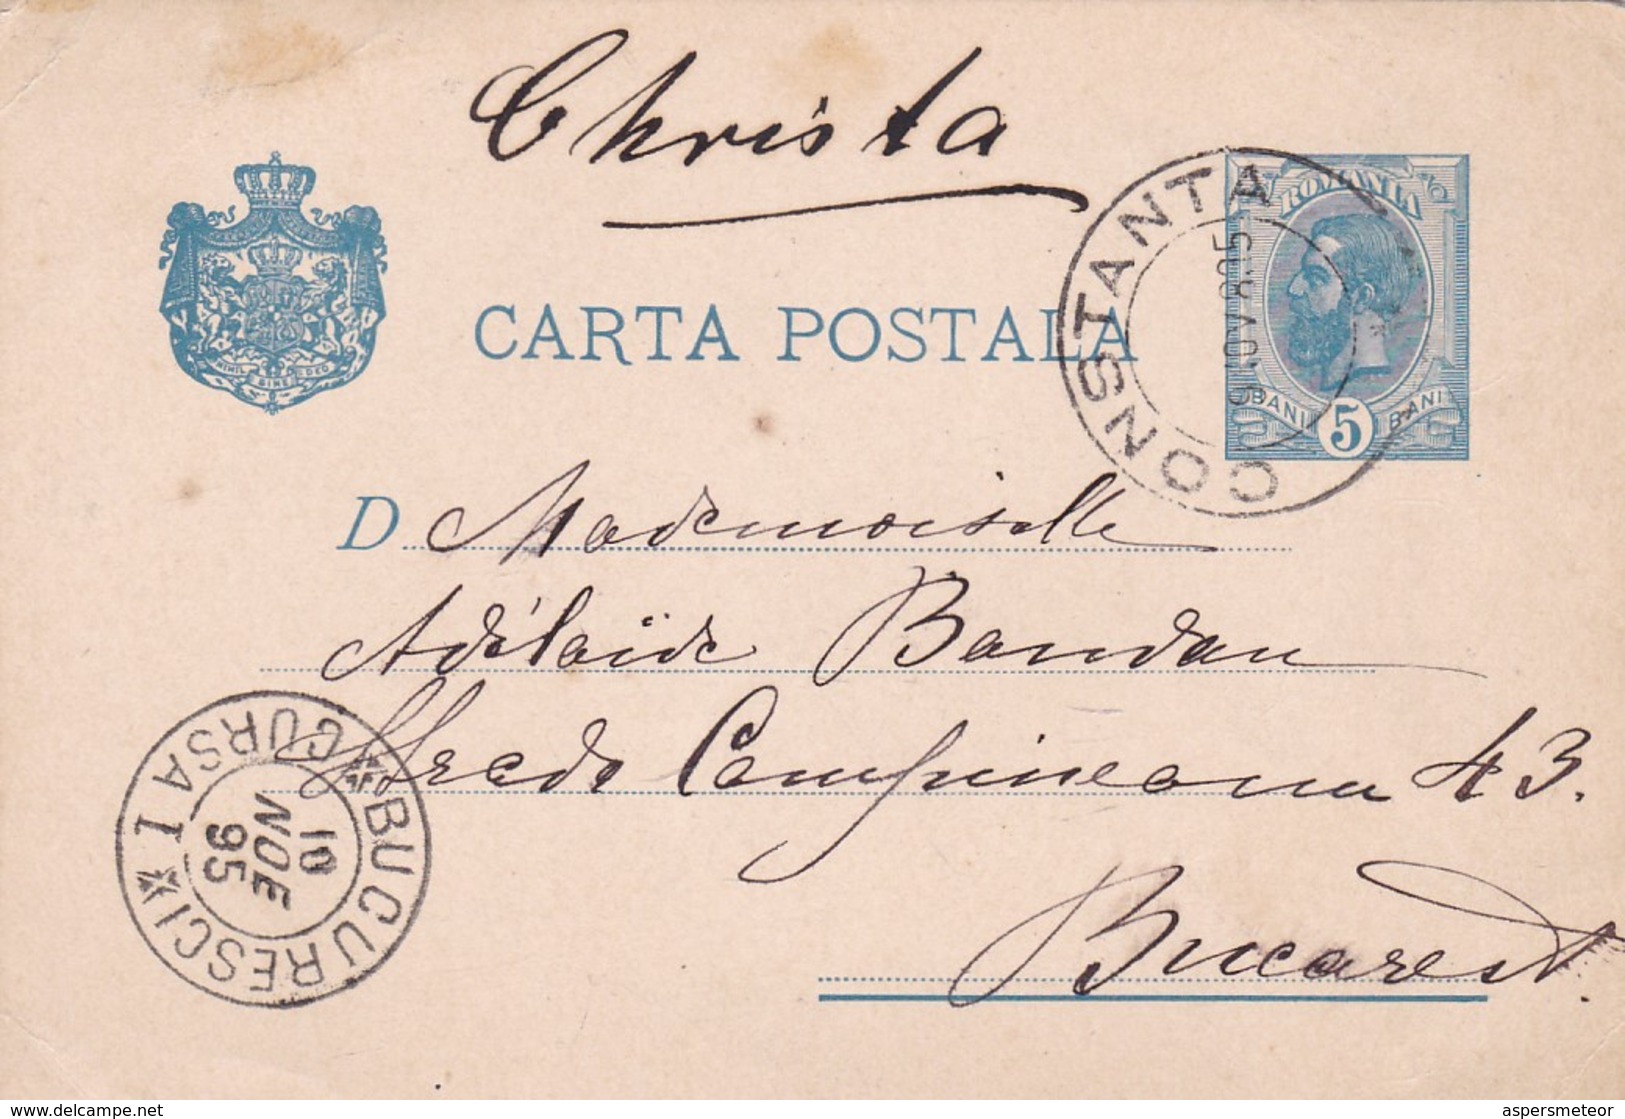 Christa
ROMANIA
CONSTANTA
9 NOV 895
NIHIL SINE DEO
CARTA POSTALA
BANI 5 BANI
D Mademoiselle
Adélaïde Bandau
Strada Campineanu 43.
Bucarest.
BUCURESCI
CURSA I
10 NOE 95
www.delcampe.net
aspersmeteor